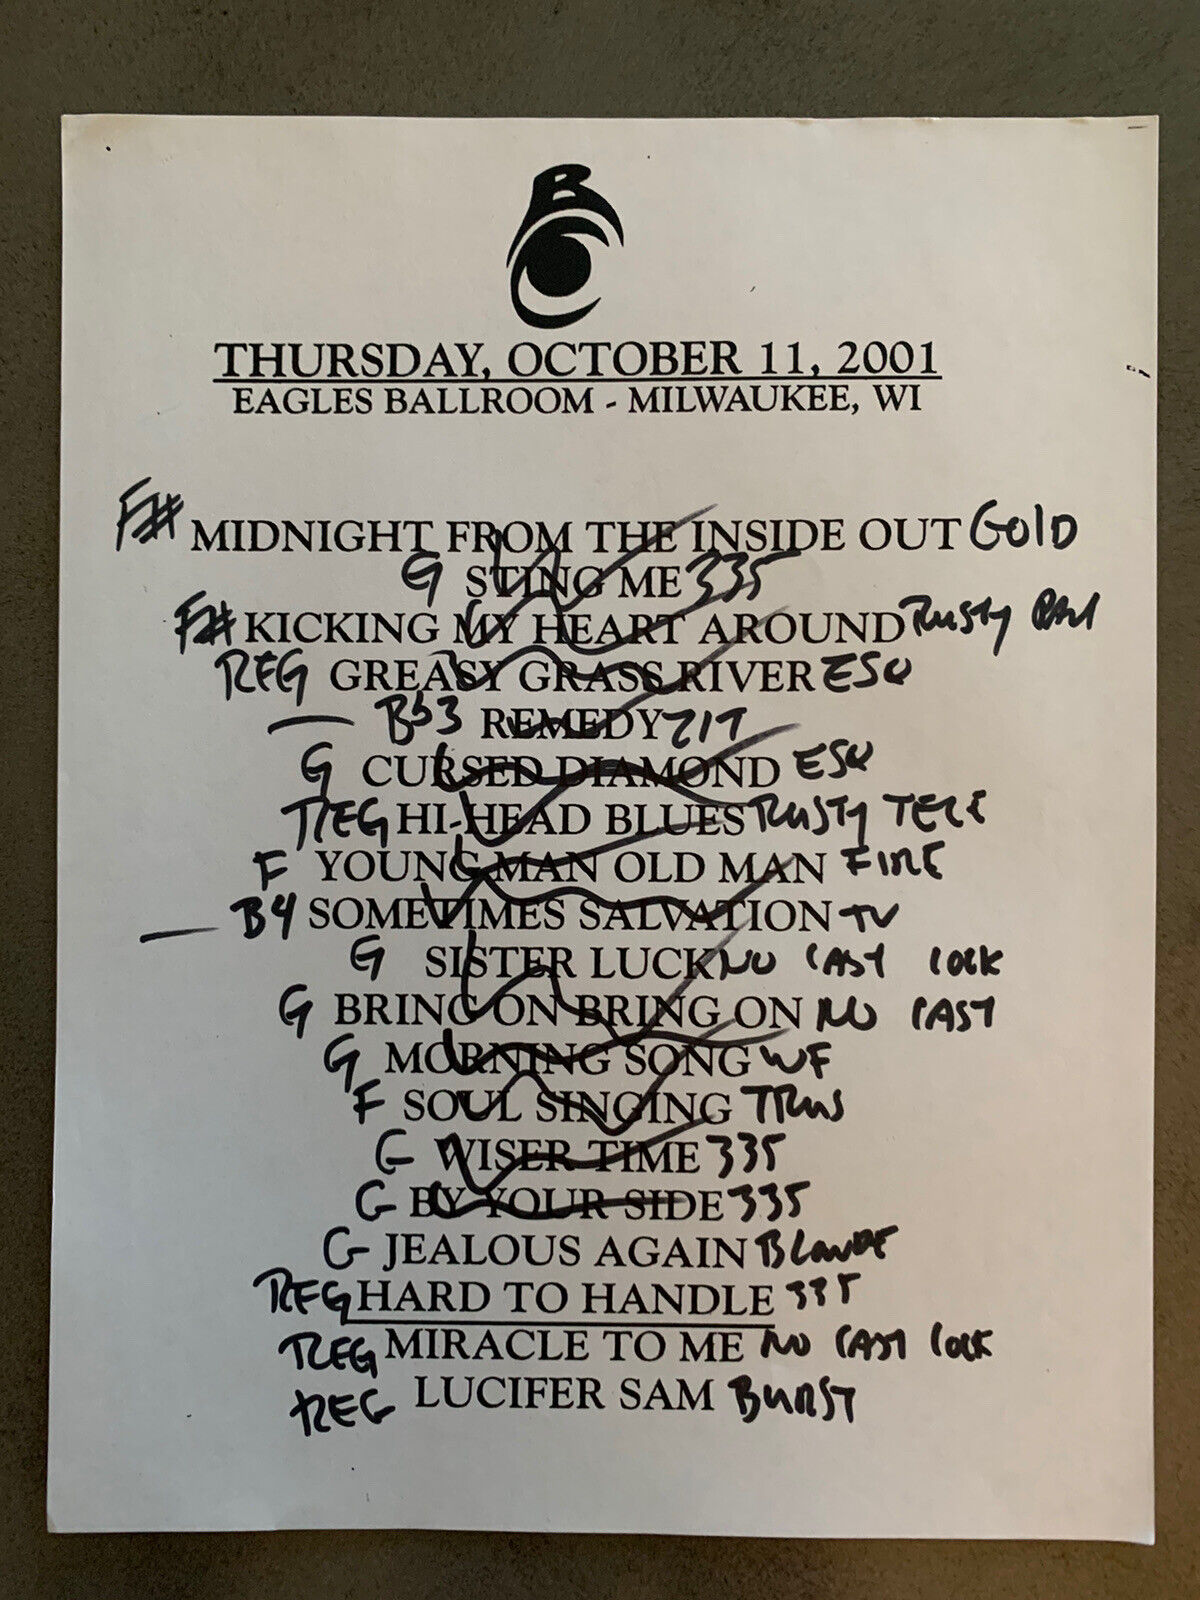 B
C
THURSDAY, OCTOBER 11, 2001
EAGLES BALLROOM - MILWAUKEE, WI
F# MIDNIGHT FROM THE INSIDE OUT GOLD
G STING ME 335
F# KICKING MY HEART AROUND RUSTY
REG GREASY GRASS RIVER ESQ
— REMEDY
G CURSED DIAMOND ESQ
REG HI-HEAD BLUES RUSTY TELE
F YOUNG MAN OLD MAN FIRE
— B4 SOMETIMES SALVATION TV
G SISTER LUCK NO CAST LOCK
G BRING ON BRING ON NO CAST
G MORNING SONG WF
F SOUL SINGING
G WISER TIME 335
G BY YOUR SIDE 335
G JEALOUS AGAIN BLONDE
REG HARD TO HANDLE 335
REG MIRACLE TO ME NO CAST LOCK
REG LUCIFER SAM BURST